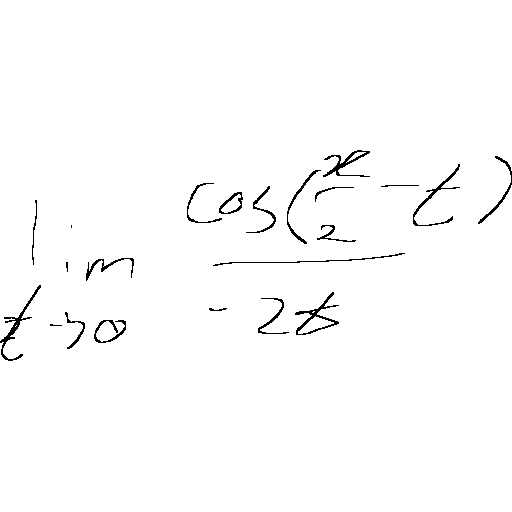 \lim_{t \to 0} \frac{\cos(\frac{\pi}{2} - t)}{-2t}